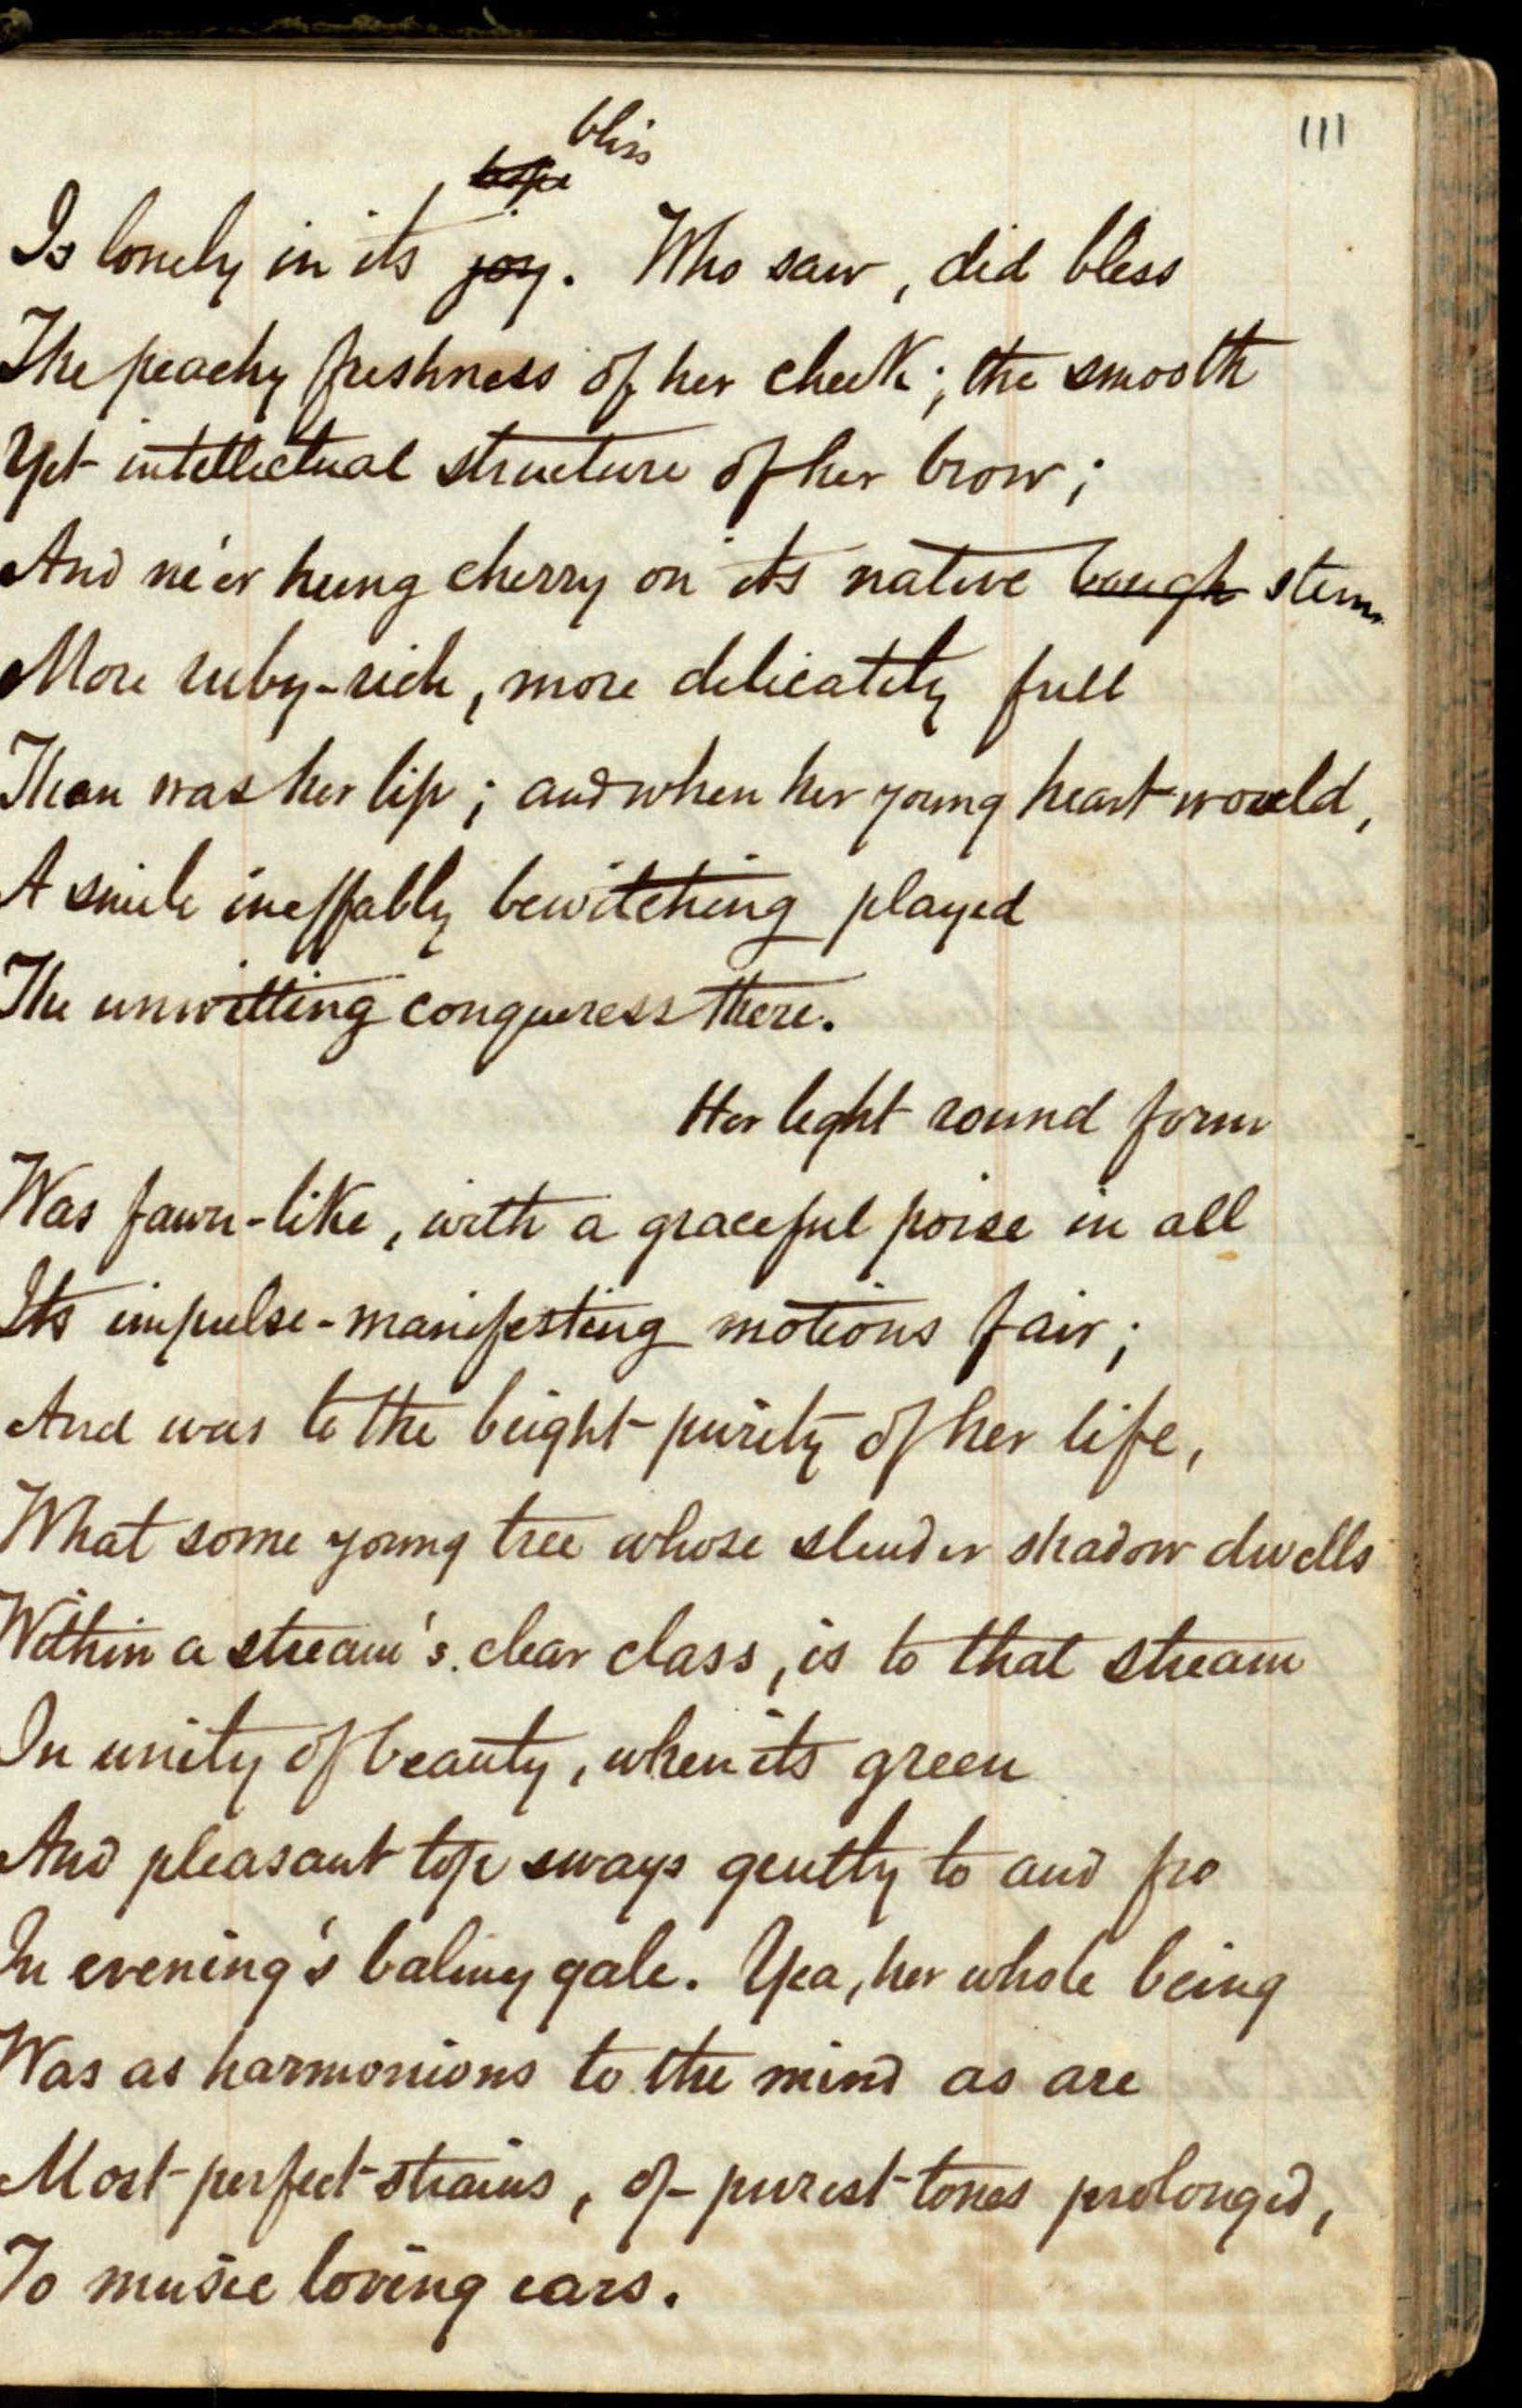 111
bliss
hope
Is lonely in its joy. Who saw, did bless
The peachy freshness of her cheek; the smooth
Yet intellectual structure of her brow;
And ne'er hung cherry on its native bough stem
More ruby-rich, more delicately full
Than was her lip; and when her young heart would,
A smile ineffably bewitching played
The unwitting conqueress there.
Her light round form
Was fawn-like, with a graceful poise in all
Its impulse-manifesting motions fair;
And was to the bright purity of her life,
What some young tree whose slender shadow dwells
Within a stream's clear class, is to that stream
In unity of beauty, when its green
And pleasant top sways gently to and fro
In evening's balmy gale. Yea, her whole being
Was as harmonious to the mind as are
Most perfect strains, of purest tones prolonged,
To music loving ears.